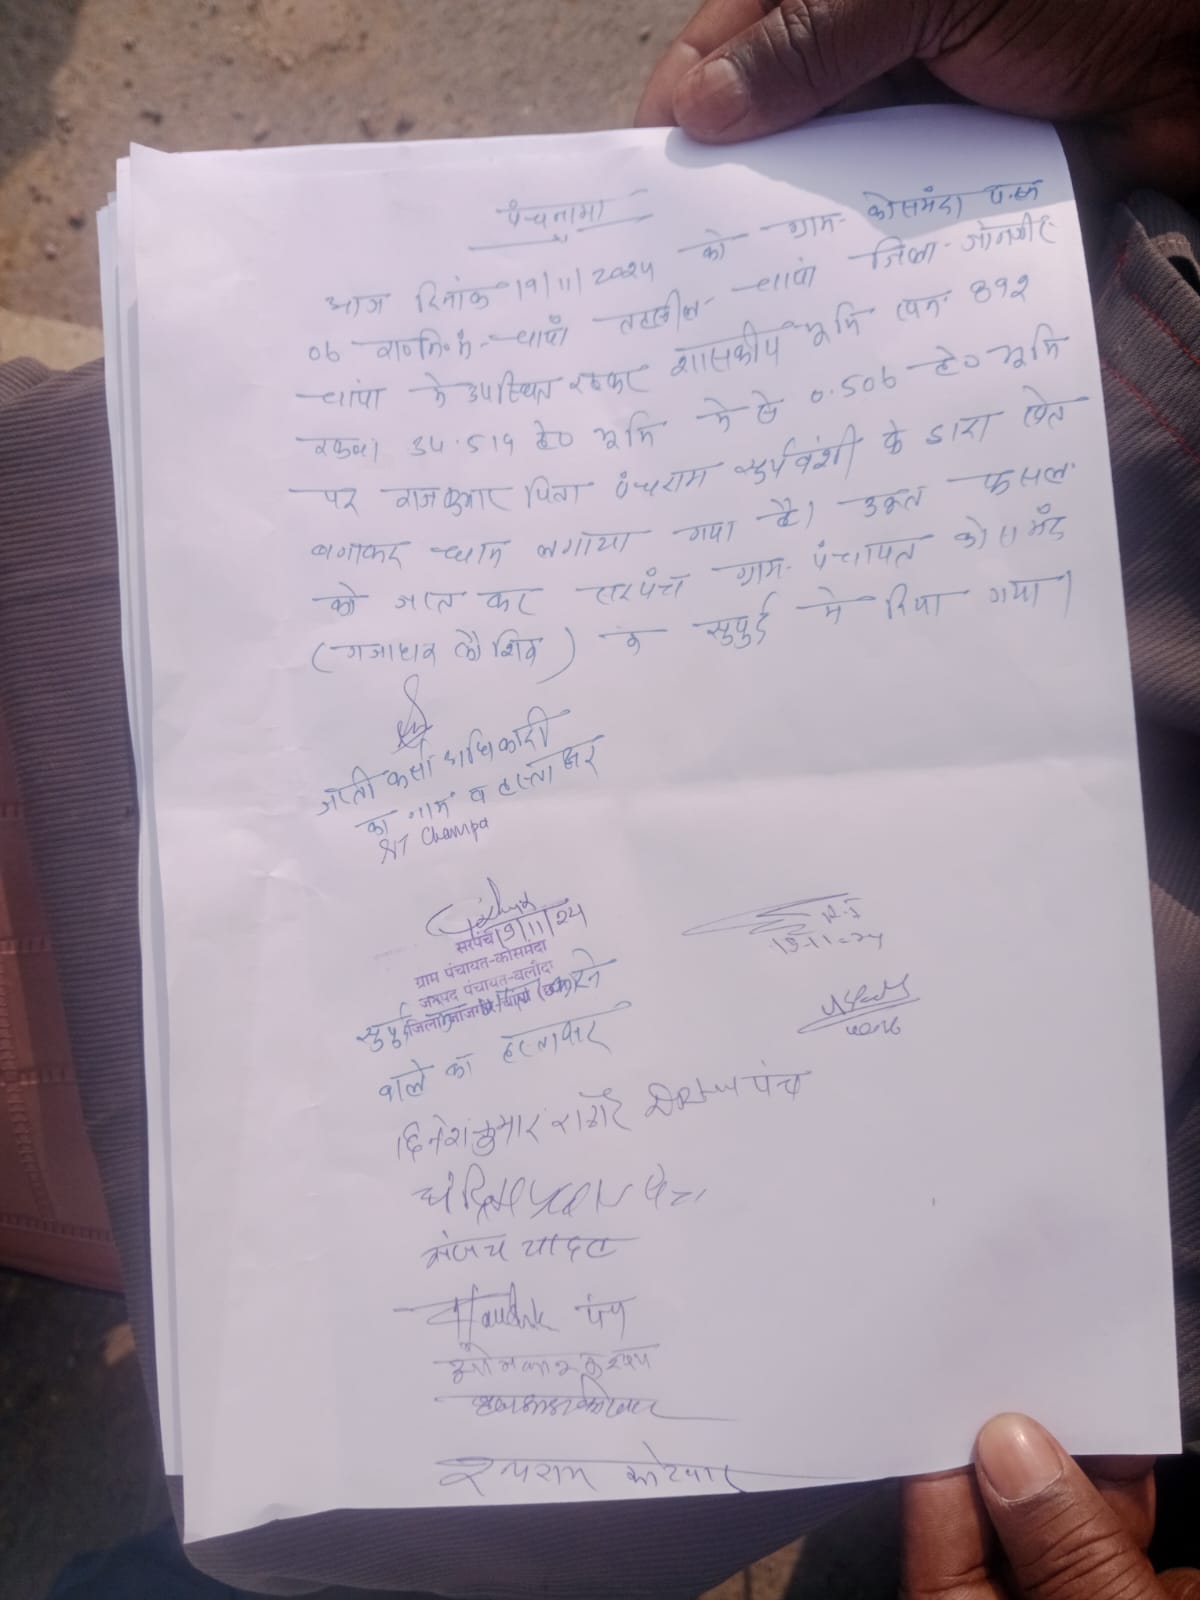 पंचनामा
आज दिनांक 19/11/2024 को ग्राम- कोसमंदा प.ह.न
06 रा०नि.मं.- चांपा तहसील- चांपा जिला- जांजगीर-
चांपा मे उपस्थित रहकर शासकीय भूमि ख.न.
रकबा 34.519 हे० भूमि मे से 0.506 हे० भूमि
पर राजकुमार पिता पंचराम सुर्यवंशी के द्वारा खेत
बनाकर धान लगाया गया है। उक्त फसल
को जप्त कर सरपंच ग्राम- पंचायत कोसमंदा
(गजाधर कौशिक) के सुपुर्द मे दिया गया।
जप्ती कर्ता अधिकारी
का नाम व हस्ताक्षर
NT Champa
सरपंच 19/11/24
ग्राम पंचायत-कोसमंदा
जनपद पंचायत-बलौदा
सुपुर्द जिला-जांजगीर-चांपा (छ.ग.)
वाले का हस्ताक्षर
R.I
19-11-24
दिनेश कुमार राठौर पंच
संजय यादव
पंच
कोटवार